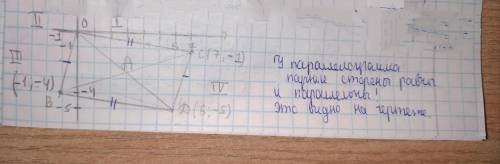 II
O
I
-1
-1
C(7,-1)
III
A
(-1,-4)
IV
B
-4
-5
D(6,-5)
У параллелограмма
парные стороны равны
и параллельны!
Это видно на чертеже.